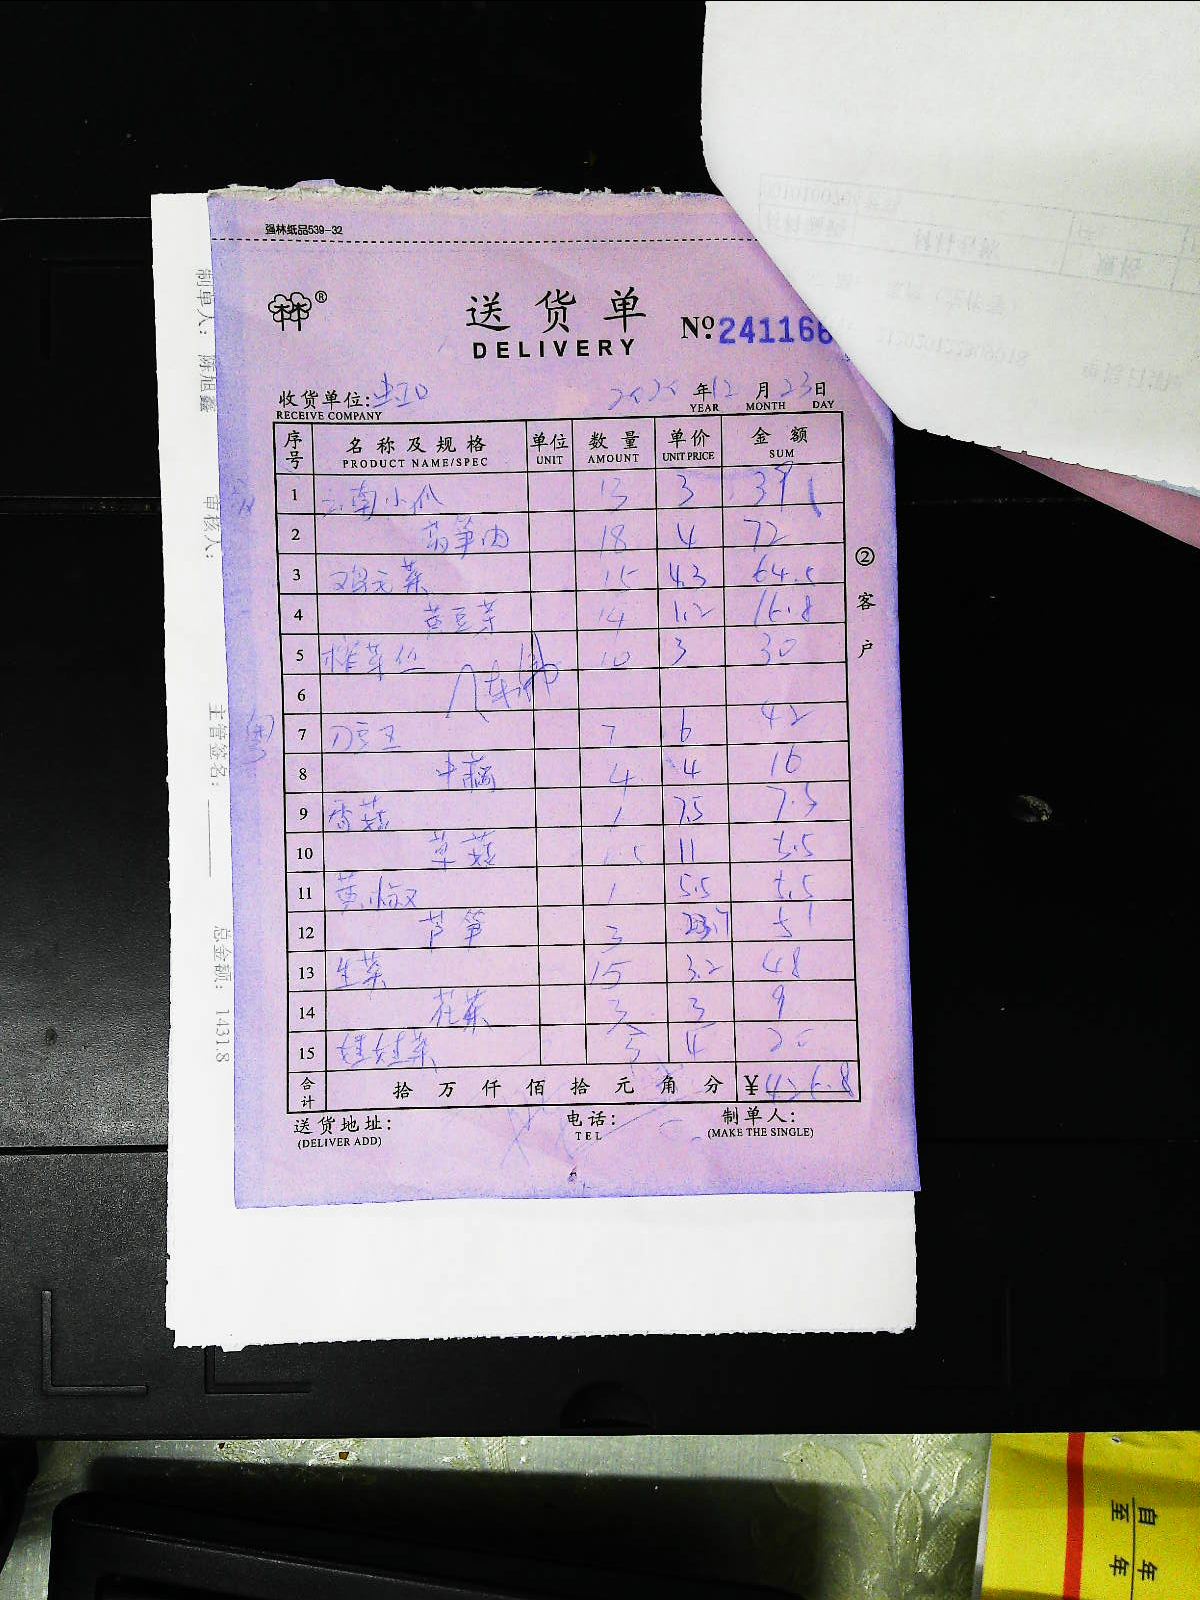 强林纸品539-32
送货单
DELIVERY
№ 241166
收货单位:
RECEIVE COMPANY
年12月23日
YEAR MONTH DAY
序号 名称及规格 单位 数量 单价 金额
PRODUCT NAME/SPEC UNIT AMOUNT UNIT PRICE SUM
1 云南小瓜 13 3 39
2 莴笋肉 18 4 72
3 鸡毛菜 15 4.3 64.5
4 黄豆芽 14 1.2 16.8
5 榨菜丝 10 3 30
6
7 刀豆 7 6 42
8 4 4 16
9 香菇 1 7.5 7.5
10 草菇 11 5.5
11 1 5.5 5.5
12 芦笋 3 51
13 生菜 15 3.2 48
14 花菜 3 3 9
15 娃娃菜 5 4 20
合计 拾万仟佰拾元角分 ¥426.8
送货地址: 电话: 制单人:
(DELIVER ADD) TEL (MAKE THE SINGLE)
②客户
制单人: 陈旭鑫
审核人:
主管签名:
总金额: 1431.8
自 年
至 年